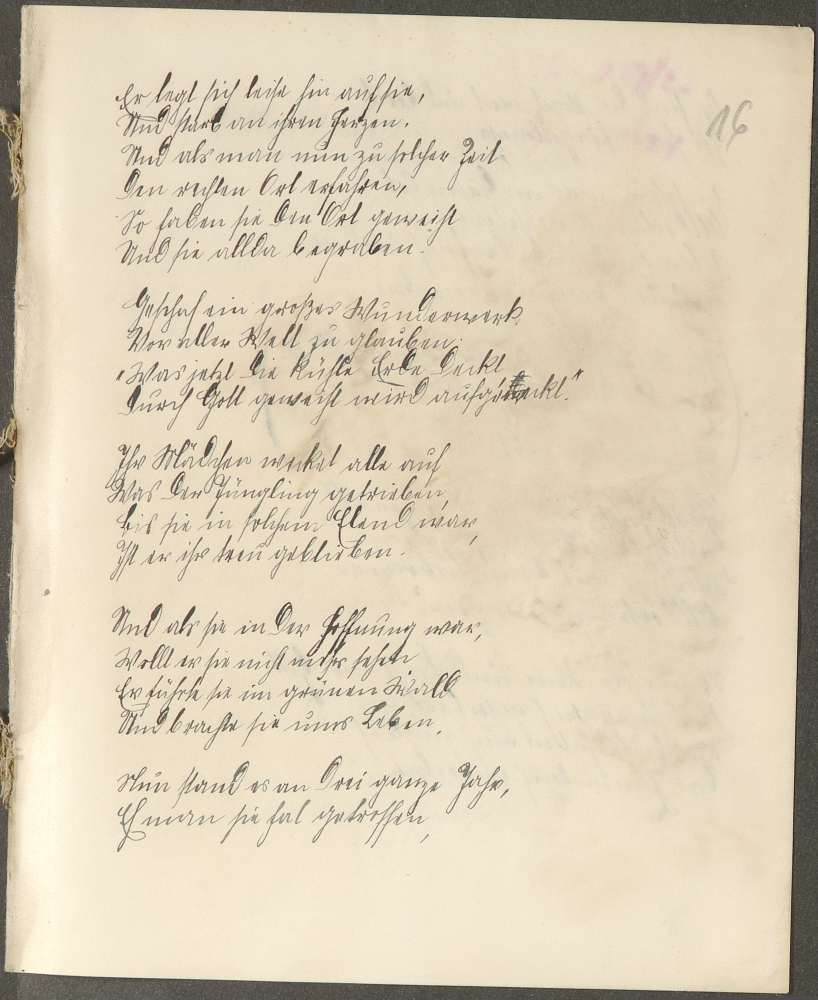 16
Er legt sich leise hin auf sie,
Und starb an ihren Herzen.
Und als man nun zu solcher Zeit
Den rechten Ort erfahren,
So haben sie den Ort geweiht
Und sie allda begraben.
Geschah ein großes Wunderwerk
Vor aller Welt zu glauben:
"Was jetzt die kühle Erde deckt
Durch Gott geweiht wird aufgedeckt."
Ihr Mädchen merket alle auf
Was der Jüngling getrieben,
Bis sie in solchem Elend war,
Ist er ihr treu geblieben.
Und als sie in der Hoffnung war,
Wollt er sie nicht mehr sehen
Er führte sie im grünen Wald
Und brachte sie ums Leben,
Nun stand es an drei ganze Jahr,
Eh man sie hat getroffen,